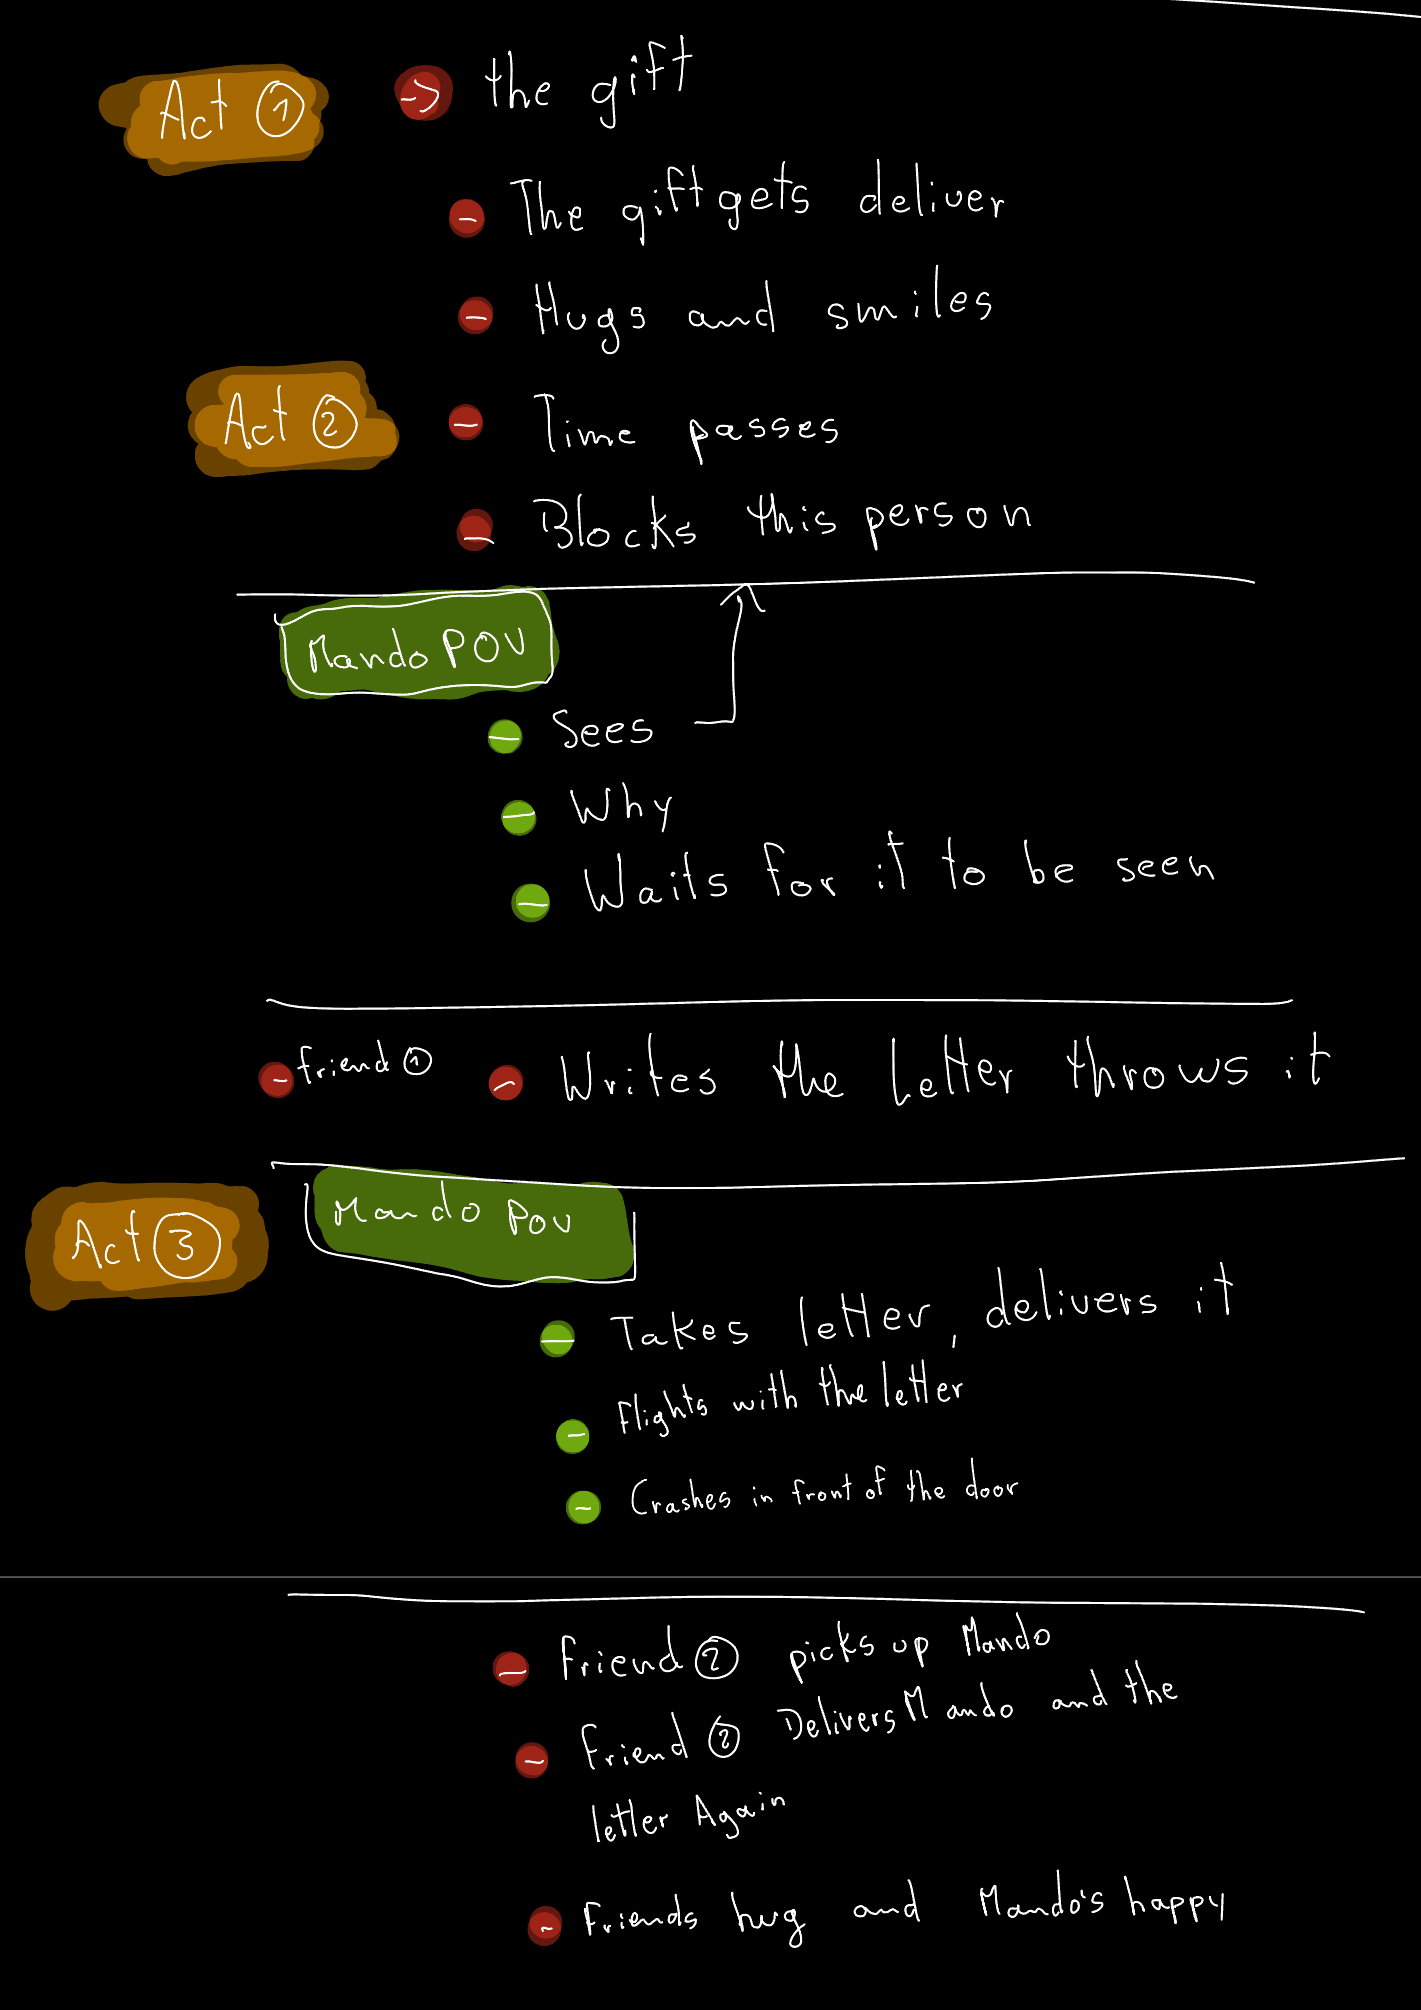 Act ① → the gift
- The gift gets deliver
- Hugs and smiles
Act ② - Time passes
- Blocks this person
Mando POV
- Sees
- Why
- Waits for it to be seen
- friend ① - Writes the letter throws it
Act ③ Mando POV
- Takes letter, delivers it
- flights with the letter
- Crashes in front of the door
- friend ② picks up Mando
- friend ② Delivers Mando and the
letter Again
- friends hug and Mando's happy